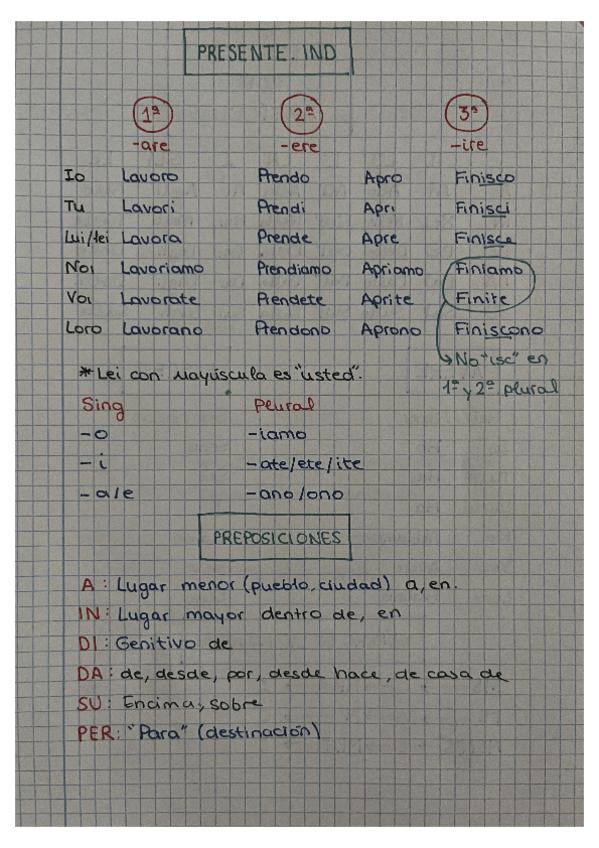 PRESENTE. IND
1ª 2ª 3ª
-are -ere -ire
Io Lavoro Prendo Apro Finisco
Tu Lavori Prendi Apri Finisci
Lui/lei Lavora Prende Apre Finisce
Noi Lavoriamo Prendiamo Apriamo Finiamo
Voi Lavorate Prendete Aprite Finite
Loro Lavorano Prendono Aprono Finiscono
↳ No "isc" en
1ª y 2ª plural
* Lei con mayúscula es "usted".
Sing Plural
-o -iamo
-i -ate/ete/ite
-a/e -ano/ono
PREPOSICIONES
A: Lugar menor (pueblo, ciudad) a, en.
IN: Lugar mayor dentro de, en
DI: Genitivo de
DA: de, desde, por, desde hace, de casa de
SU: Encima, sobre
PER: "Para" (destinación)